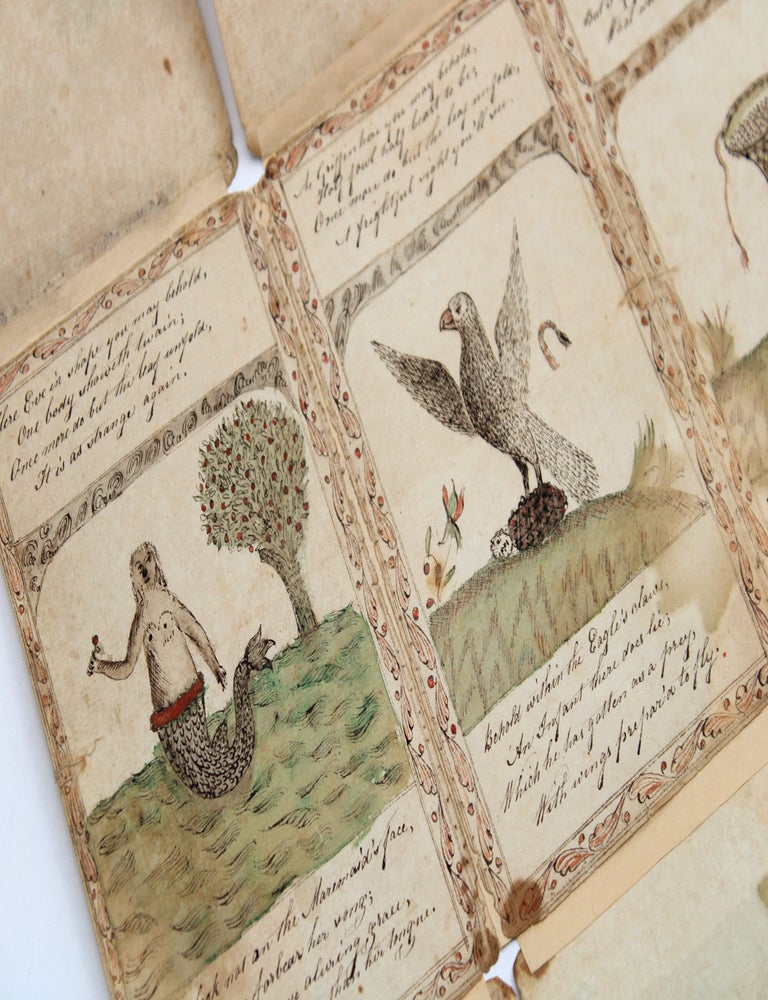 Here Eve in shape you may behold,
One body showeth twain;
Once more do but the leaf unfold,
It is as strange again.
A Griffin here you may behold,
Half fowl half beast to be;
Once more do but the leaf unfold,
A frightful sight you'll see.
But
look not on the Marimaid's face,
forbear her song;
aluring grace,
her tongue.
Behold within the Eagle's claws,
An Infant there does lie;
Which he has gotten as a prey,
With wings prepar'd to fly.